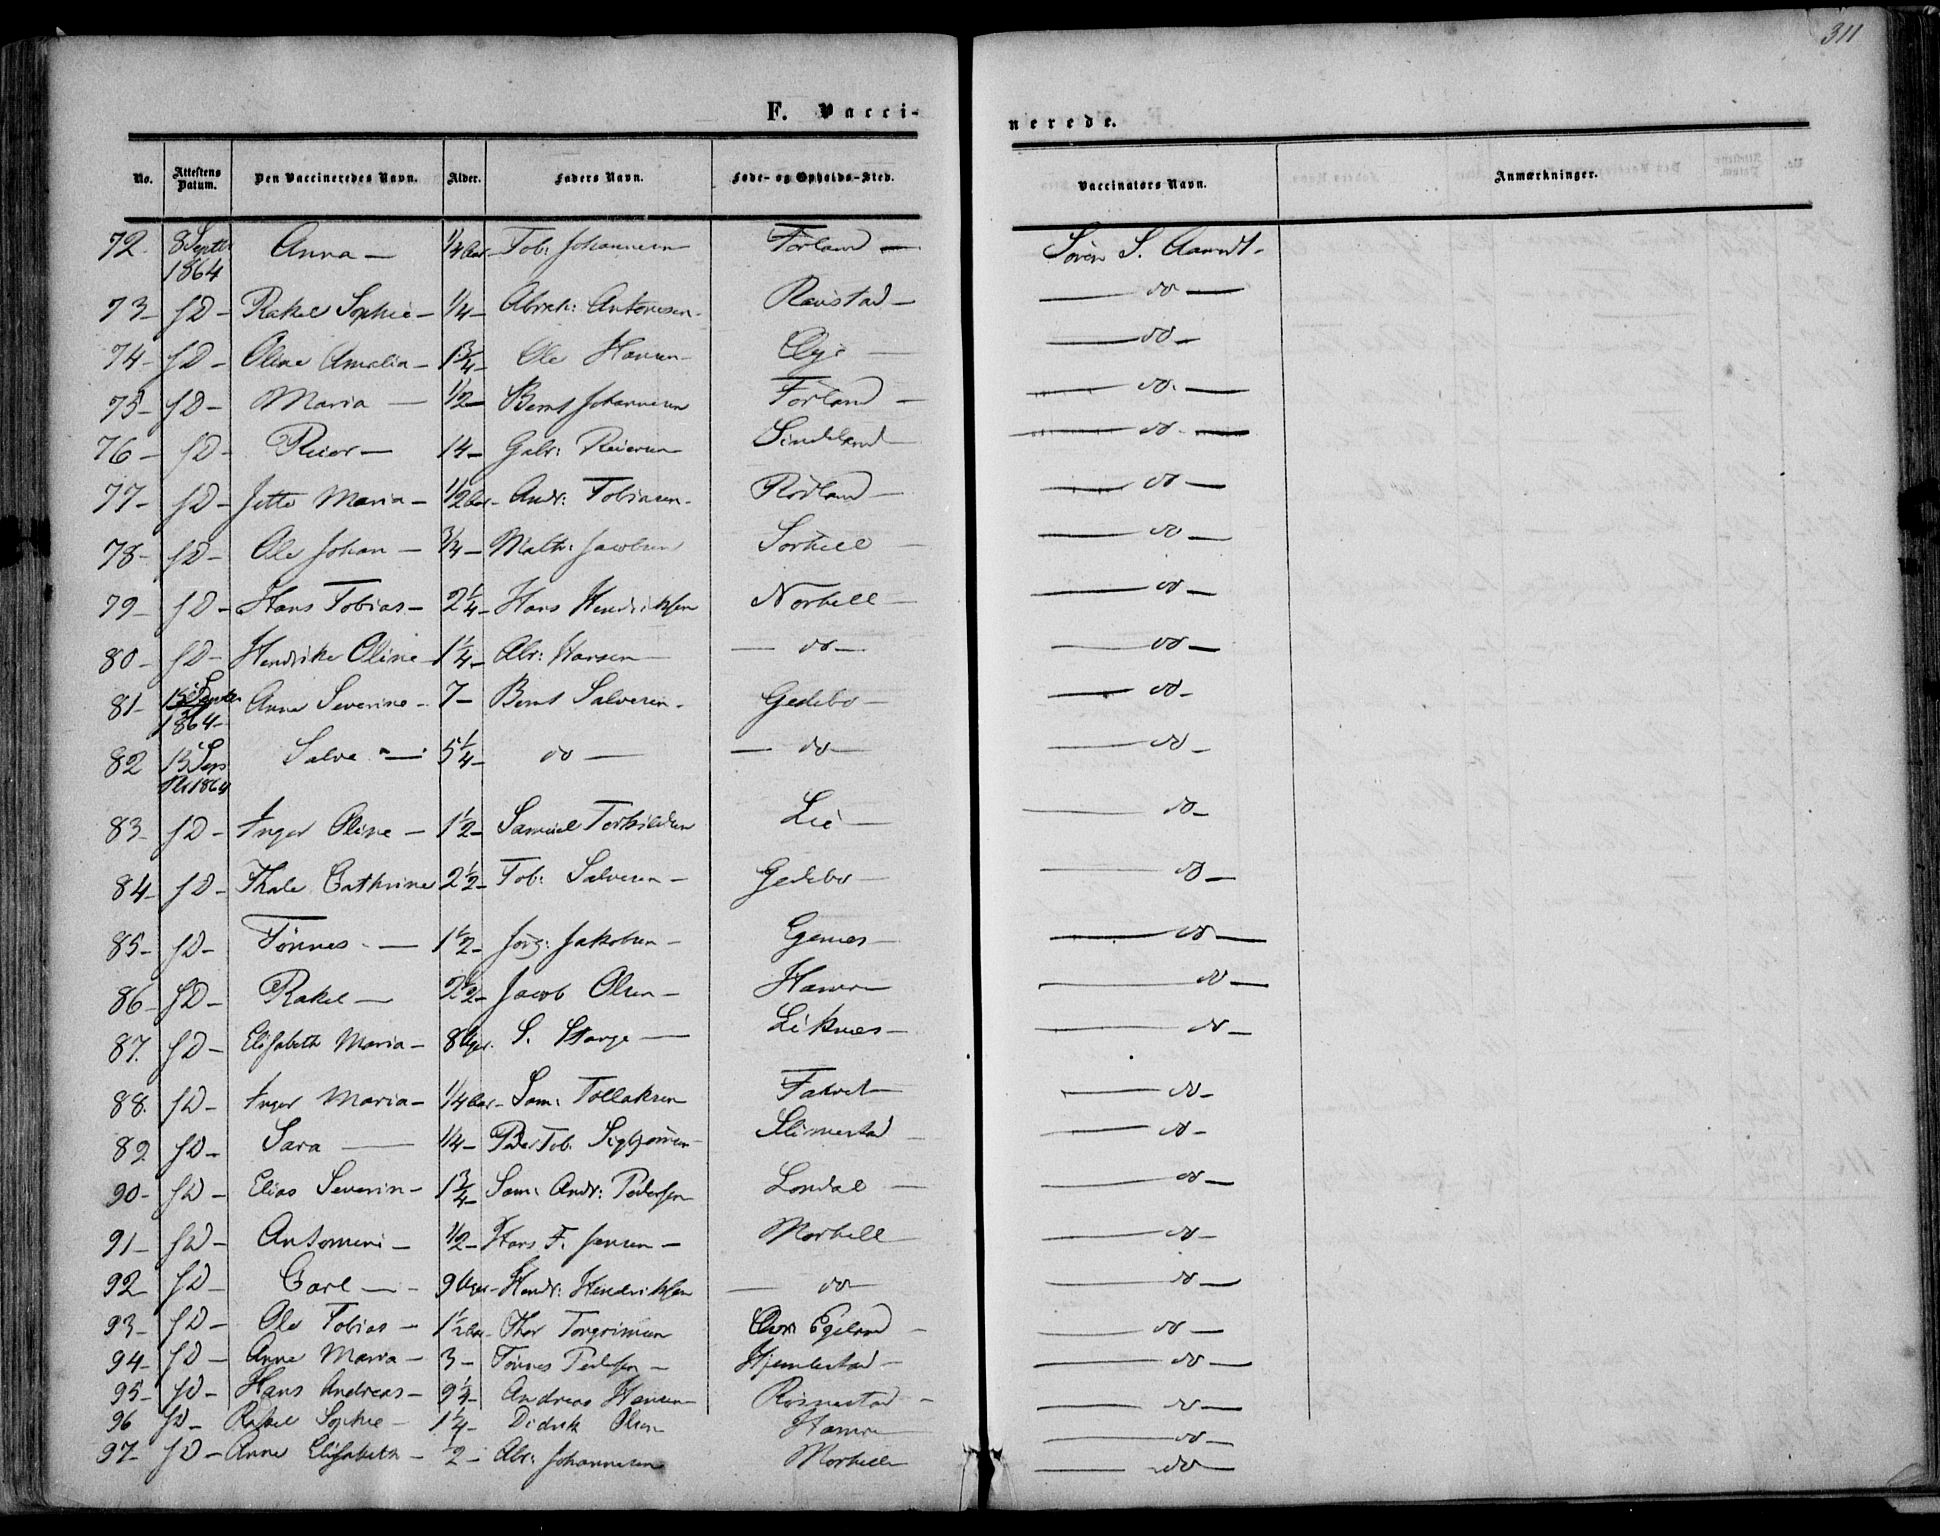 311
F. Vacci-
nerede.
No. Attestens Datum. Den Vaccineredes Navn. Alder. Faders Navn. Føde- og Opholds-Sted. Vaccinators Navn. Anmærkninger.
72. 8 Septbr 1864 Anna — 1/4 Aar — Tob: Johannesen Förland — Sören S.
73 — fD — Rakel Sophie — 1/4 — Abrah: Antonesen — — do —
74 — fD — Oline Amalia — 1 3/4 — Ole Hansen — Øye — — do —
75 — fD — Maria — 1/2 — Bernt Johannesen Förland — — do —
76 — fD — Reier — 14 — Gabr: Reiersen Sindland — — do —
77 — fD — Jette Maria — 1/2 Aar — Andr: Tobiasen — Rödland — — do —
78 — fD — Ole Johan — 3/4 — Math: Jacobsen — do —
79 — fD — Hans Tobias — 2 1/4 — Hans Hendriksen — do —
80 — fD — Hendrikke Oline — 1 1/4 — Abr: Hansen — do — — do —
81 — 13 Septbr 1864 — Anne Severine — 7 — Bernt Salvesen — Gedebo — — do —
82 13 Sep 1864 Salve — 5 1/4 — do — — do — — do —
83 — fD — Inger Oline — 1 1/2 — Samuel Torkildsen Lie — — do —
84 — fD — Thale Cathrine 2 1/2 — Tob: Salvesen — Gedebo — — do —
85 — fD — Tönnes — 1 1/2 — Jörg: Jakobsen — — do —
86 — fD — Rakel — 2 1/2 — Jacob Olsen — Hamre — do —
87. fD — Elisabeth Maria — 8 Uger. S. — Liknes — — do —
88. fD — Inger Maria — 1/4 Aar — Sam: Tollaksen — do —
89 fD — Sara — 1/4 — Peder Tob: Sigbjörnsen — Slimestad — do —
90 — fD — Elias Severin — 1 3/4 — Sam: Andr: Pedersen Londal — — do —
91 — fD — Antomine — 1/2 — Hans F. Jensen — — do —
92 — fD — Carl — 9 Uger — Hendr: Hendriksen — do — — do —
93 — fD — Ole Tobias — 1 1/2 Aar — Thor Torgrimsen Egeland — — do —
94 — fD — Anne Maria — 3 — Tönnes Pedersen — Hjemlestad — — do —
95 — fD — Hans Andreas — 9 1/4 — Andreas Hansen Rösnestad — — do —
96 fD — Rakel Sophie — 1 1/4 — Didrik Olsen Hamre — do —
97 — fD — Anne Elisabeth — 1/2 — Abr: Johannesen — do —